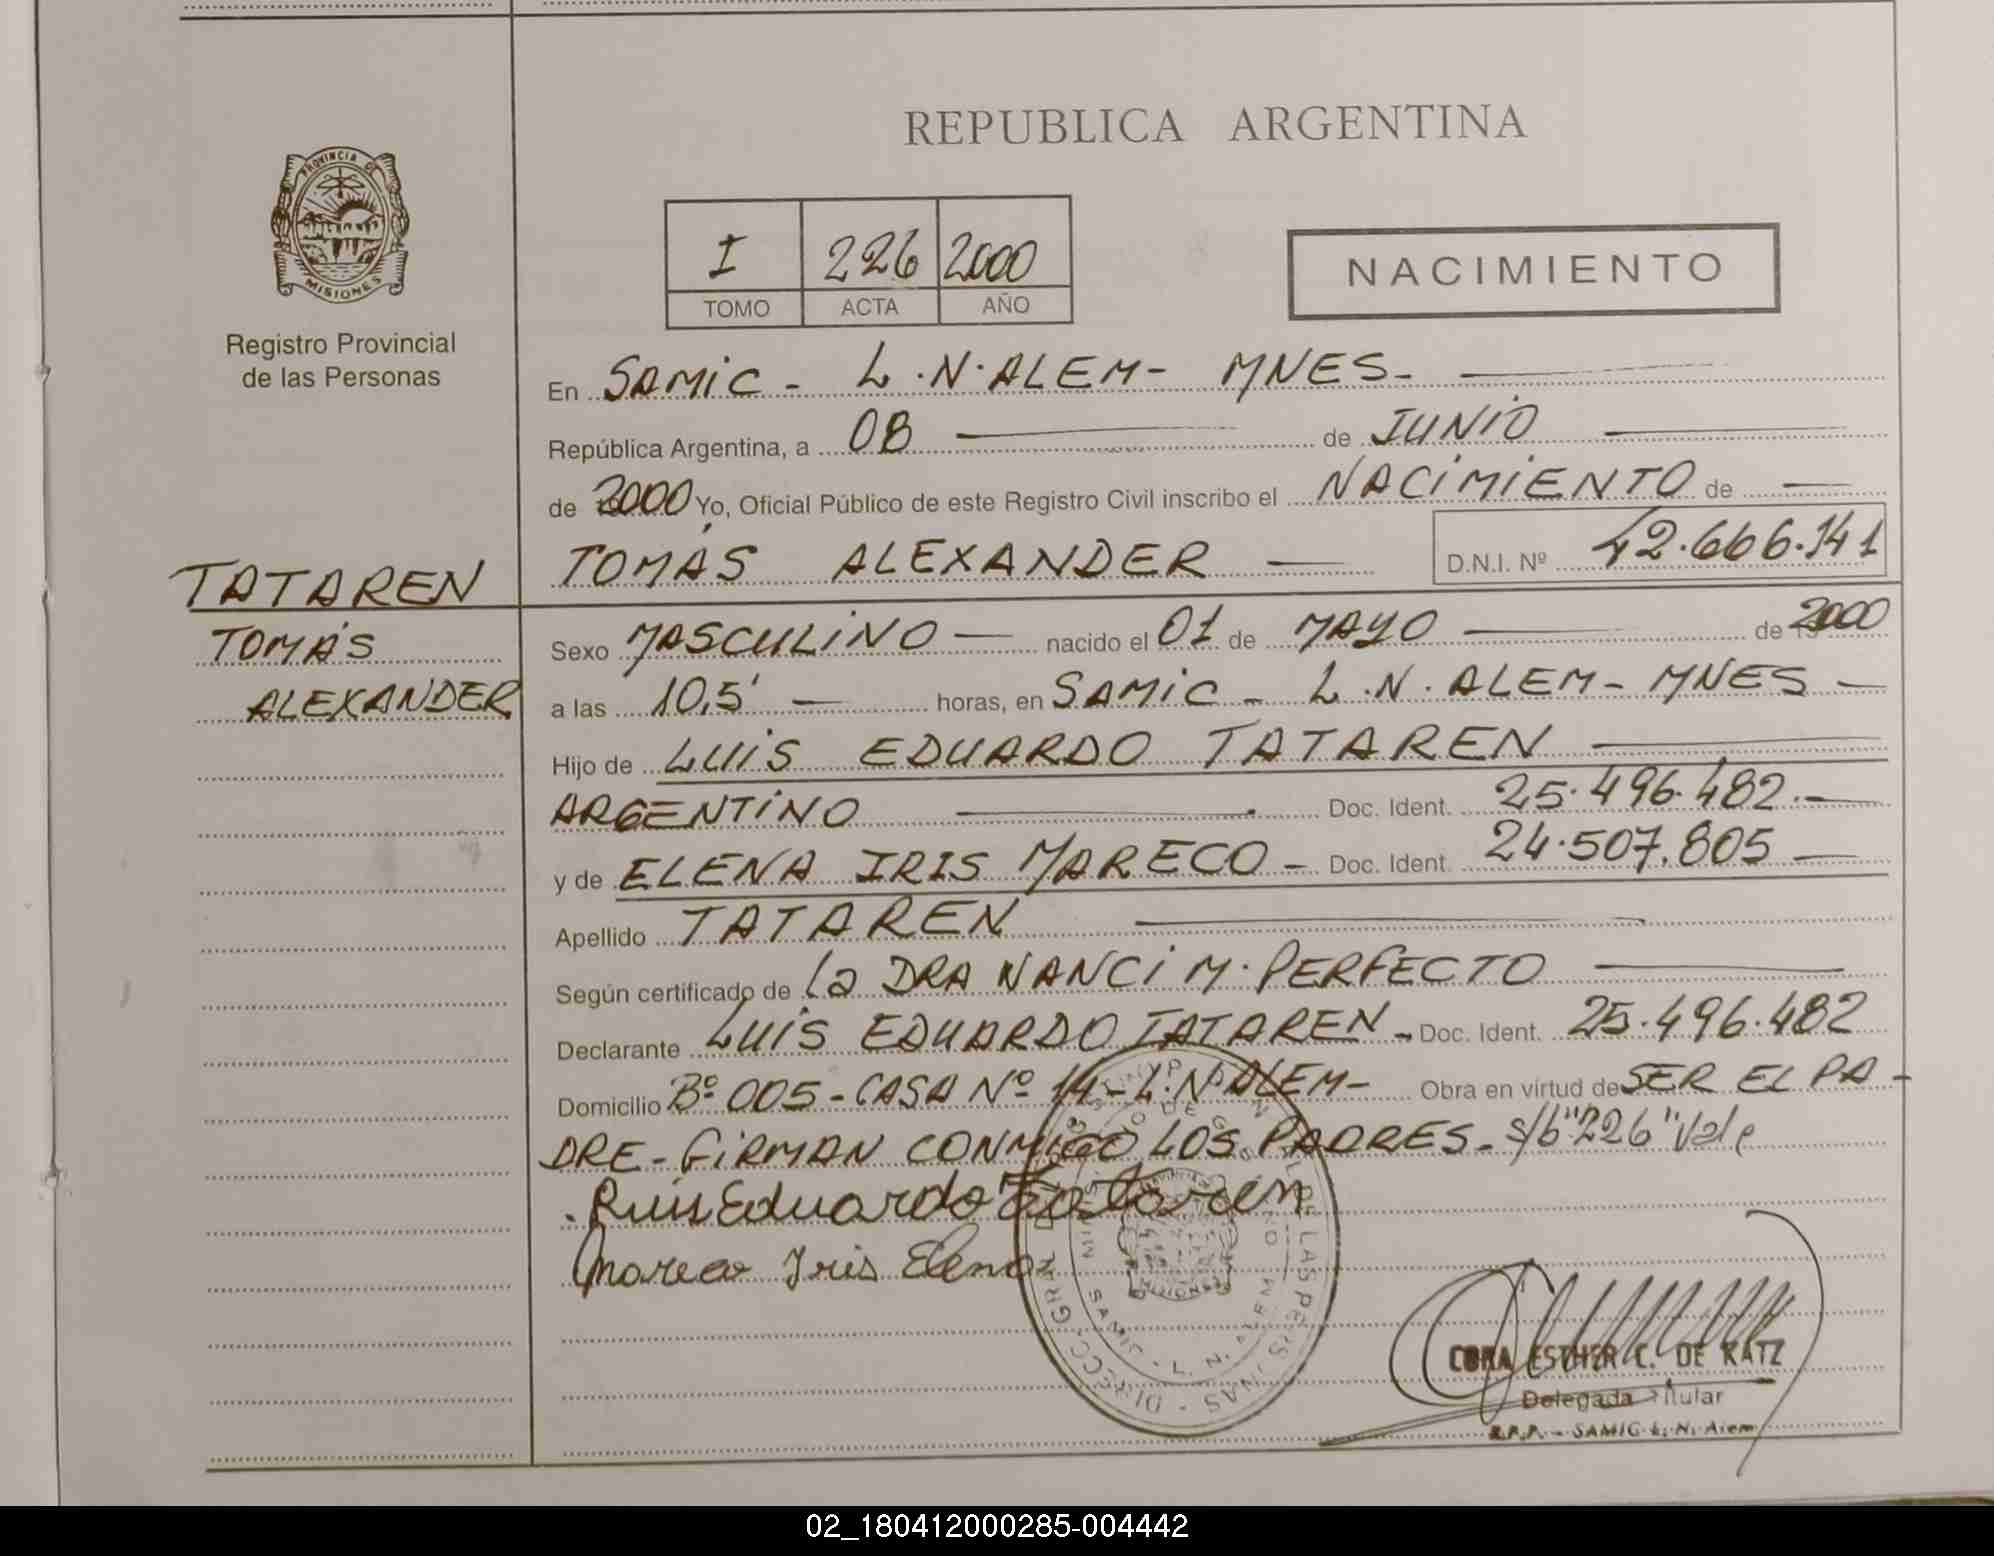 REPUBLICA ARGENTINA
PROVINCIA DE
MISIONES
Registro Provincial
de las Personas
I 226 2000
TOMO ACTA AÑO
NACIMIENTO
En SAMIC - L.N.ALEM - MNES -
República Argentina, a 08 de JUNIO
de 2000 Yo, Oficial Público de este Registro Civil inscribo el NACIMIENTO de
TOMÁS ALEXANDER D.N.I. Nº 42.666.141
TATAREN
TOMÁS
ALEXANDER
Sexo MASCULINO nacido el 01 de MAYO de 2000
a las 10,5' horas, en SAMIC - L.N. ALEM - MNES -
Hijo de LUIS EDUARDO TATAREN
ARGENTINO Doc. Ident. 25.496.482.-
y de ELENA IRIS MARECO - Doc. Ident. 24.507.805 -
Apellido TATAREN
Según certificado de la DRA NANCI M. PERFECTO
Declarante LUIS EDUARDO TATAREN - Doc. Ident. 25.496.482
Domicilio Bº 005 - CASA Nº 14 - L.N ALEM - Obra en virtud de SER EL PA -
DRE - FIRMAN CONMIGO LOS PADRES - s/b "226" Vale
Luis Eduardo Tataren
Mareco Iris Elena
ESTHER C. DE KATZ
Delegada Titular
R.P.P. - SAMIC L. N. Alem
02_180412000285-004442